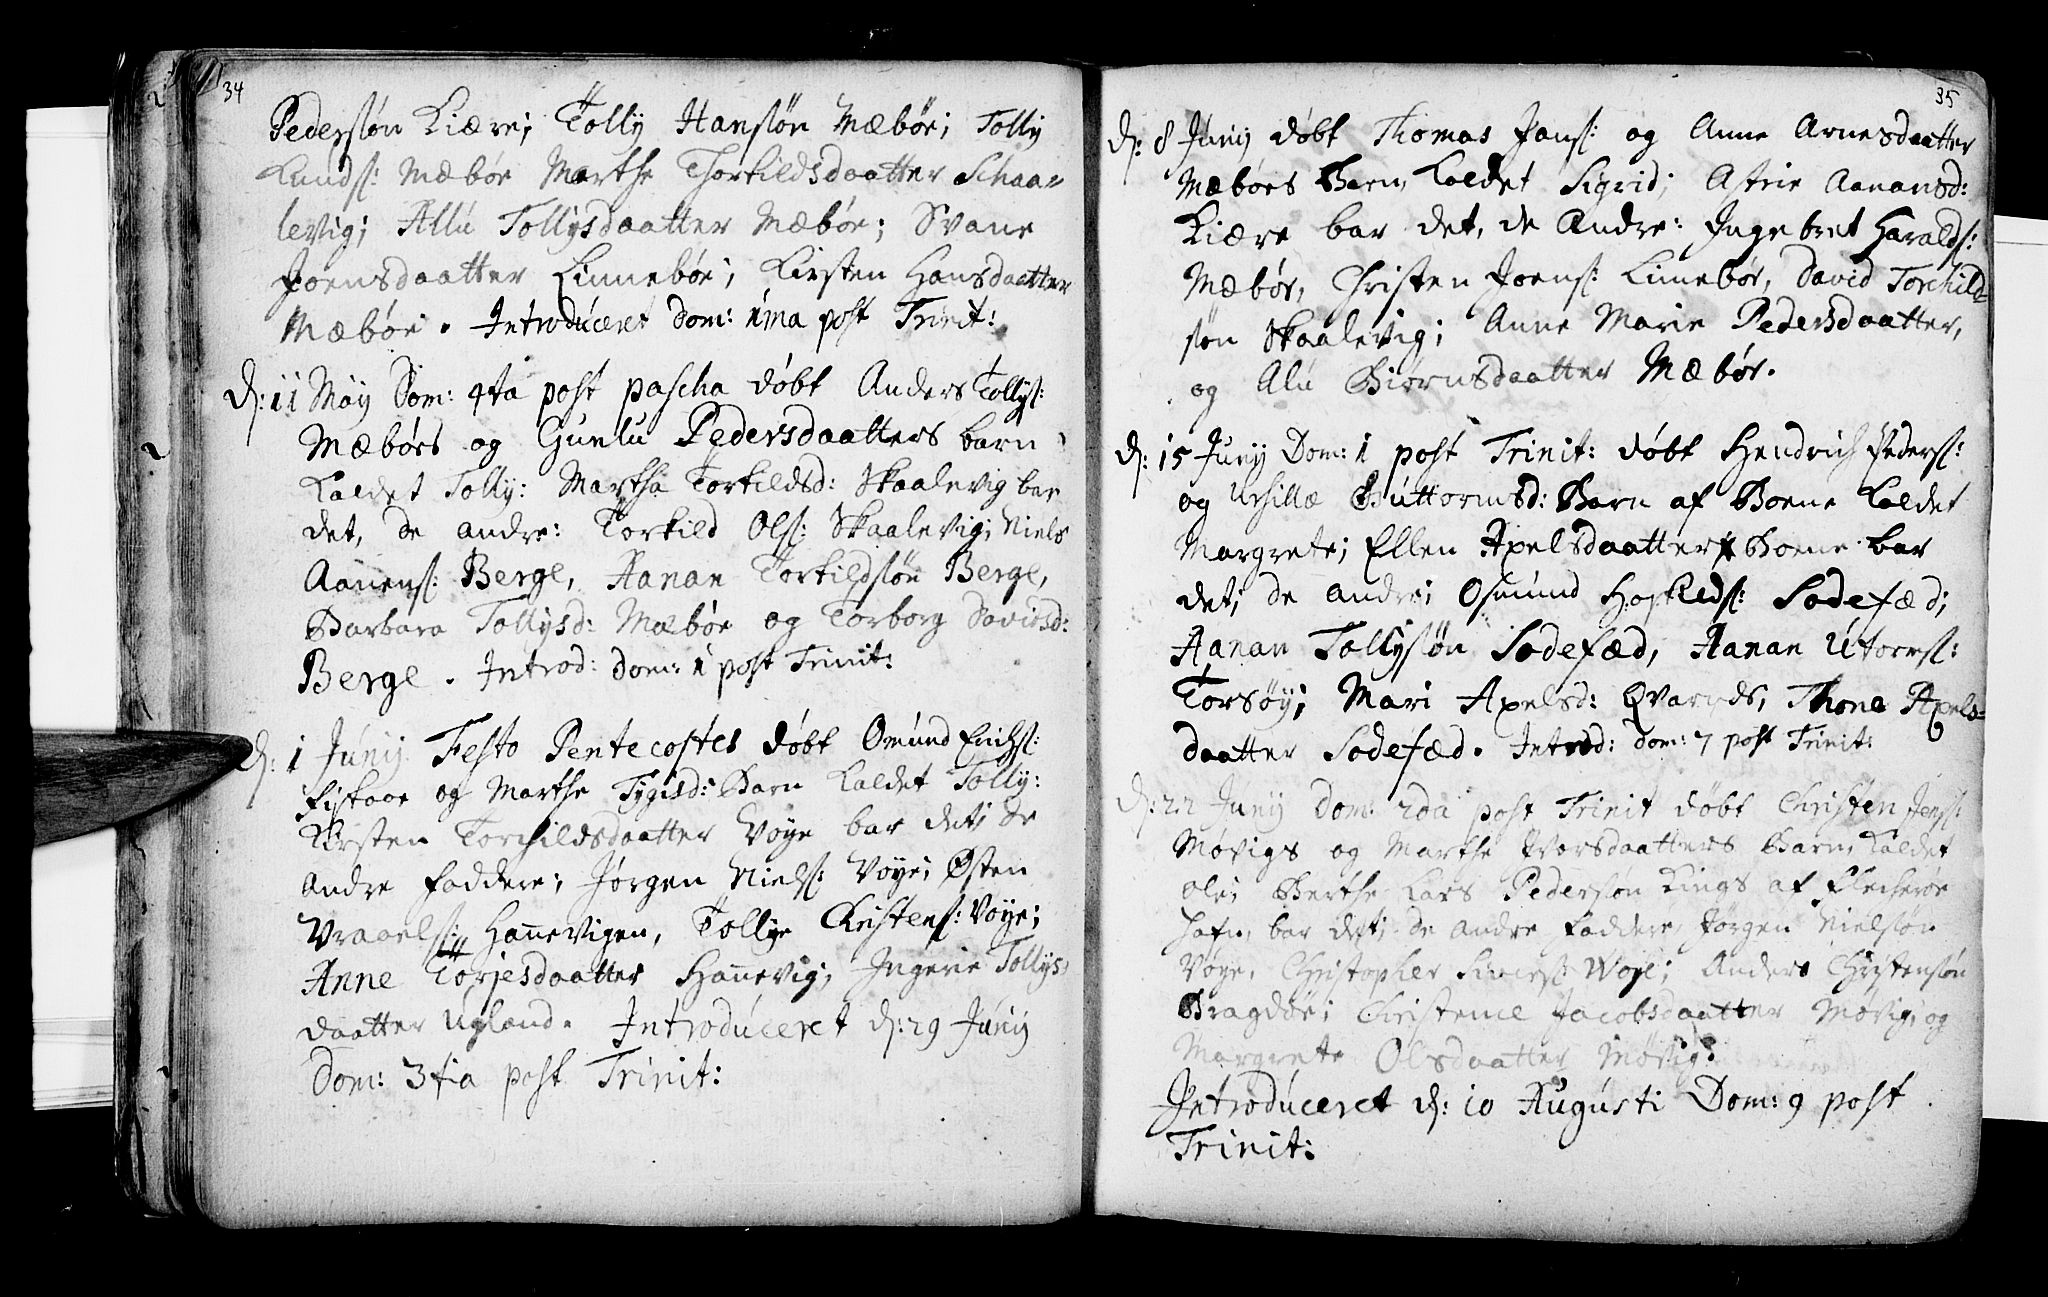 34
Pedersøn Kiære; Tolly Hansøn Mæbøe; Tolly
Knuds: Mæbøe Marthe Thorkildsdaatter Schaa-
levig; Allu Tollysdaatter Mæbøe; Svane
Joensdaatter Linnebøe; Kirsten Hansdaatter
Mæbøe. Introduceret Dom: 1ma post Trinit:
D: 11 May Dom: 4ta post pascha døbt Anders Tollys:
Mæbøes og Gunlu Pedersdaatters barn
kaldet Tolly: Martha Torkildsd: Skaalevig bar
det, de andre: Torkild Ols: Skaalevig; Niels
Aanens: Berge, Aanan Torkildsøn Berge,
Barbara Tollysd: Mæbøe og Torborg Davidsd:
Berge. Introd: Dom: 1 post Trinit:
D: 1 Junij Festo Pentecostes døbt Omund Erichs:
Fiskaae og Marthe Tygisd: Barn kaldet Tolly:
Kirsten Torchildsdaatter Vøye bar det; de
andre faddere; Jørgen Niels: Vøye; Østen
Vraaels: Hannevigen, Tollye Christens: Vøye;
Anne Torjesdaatter Hannevig; Ingerie Tollys
daatter Ugland. Introduceret d: 29 Junij
Dom: 3tia post Trinit:
35
D: 8 Junij døbt Thomas Jans: og Anne Arnesdaatter
Mæbøes Barn, kaldet Sigrid; Astrie Aanansd:
Kiære bar det, de Andre: Ingebret Haralds:
Mæbøe, Christen Joens: Linnebøe, David Torchild-
søn Skaalevig; Anne Marie Pedersdaatter,
og Alu Biørnsdaatter Mæbøe.
D: 15 Junij Dom: 1 post Trinit: døbt Hendrich Peders:
og Ursillæ Guttormsd: Barn af Boene kaldet
Margrete; Ellen Axelsdaatter Boene bar
det; de andre; Osmund Hoskilds: Sodefæd;
Aanan Tollysøn Sodefæd, Aanan Utorrs:
Torsøy; Mari Axelsd: Qvarnds, Thone Axels-
daatter Sodefæd. Introd: Dom: 7 post Trinit:
D: 22 Junij Dom: 2da post Trinit døbt Christen Jens:
Møvigs og Marthe Ivorsdaatters Barn, kaldet
Ole; Berthe Lars Pedersøn Kings af Flecherøe
hafn, bar det; de andre faddere, Jørgen Nielsøn
Vøye, Christopher Sivers: Woye; Anders Christensøn
Bragdøe; Christence Jacobsdaatter Møvig; og
Margrete Olsdaatter Møvig.
Introduceret d: 10 Augusti Dom: 9 post
Trinit: